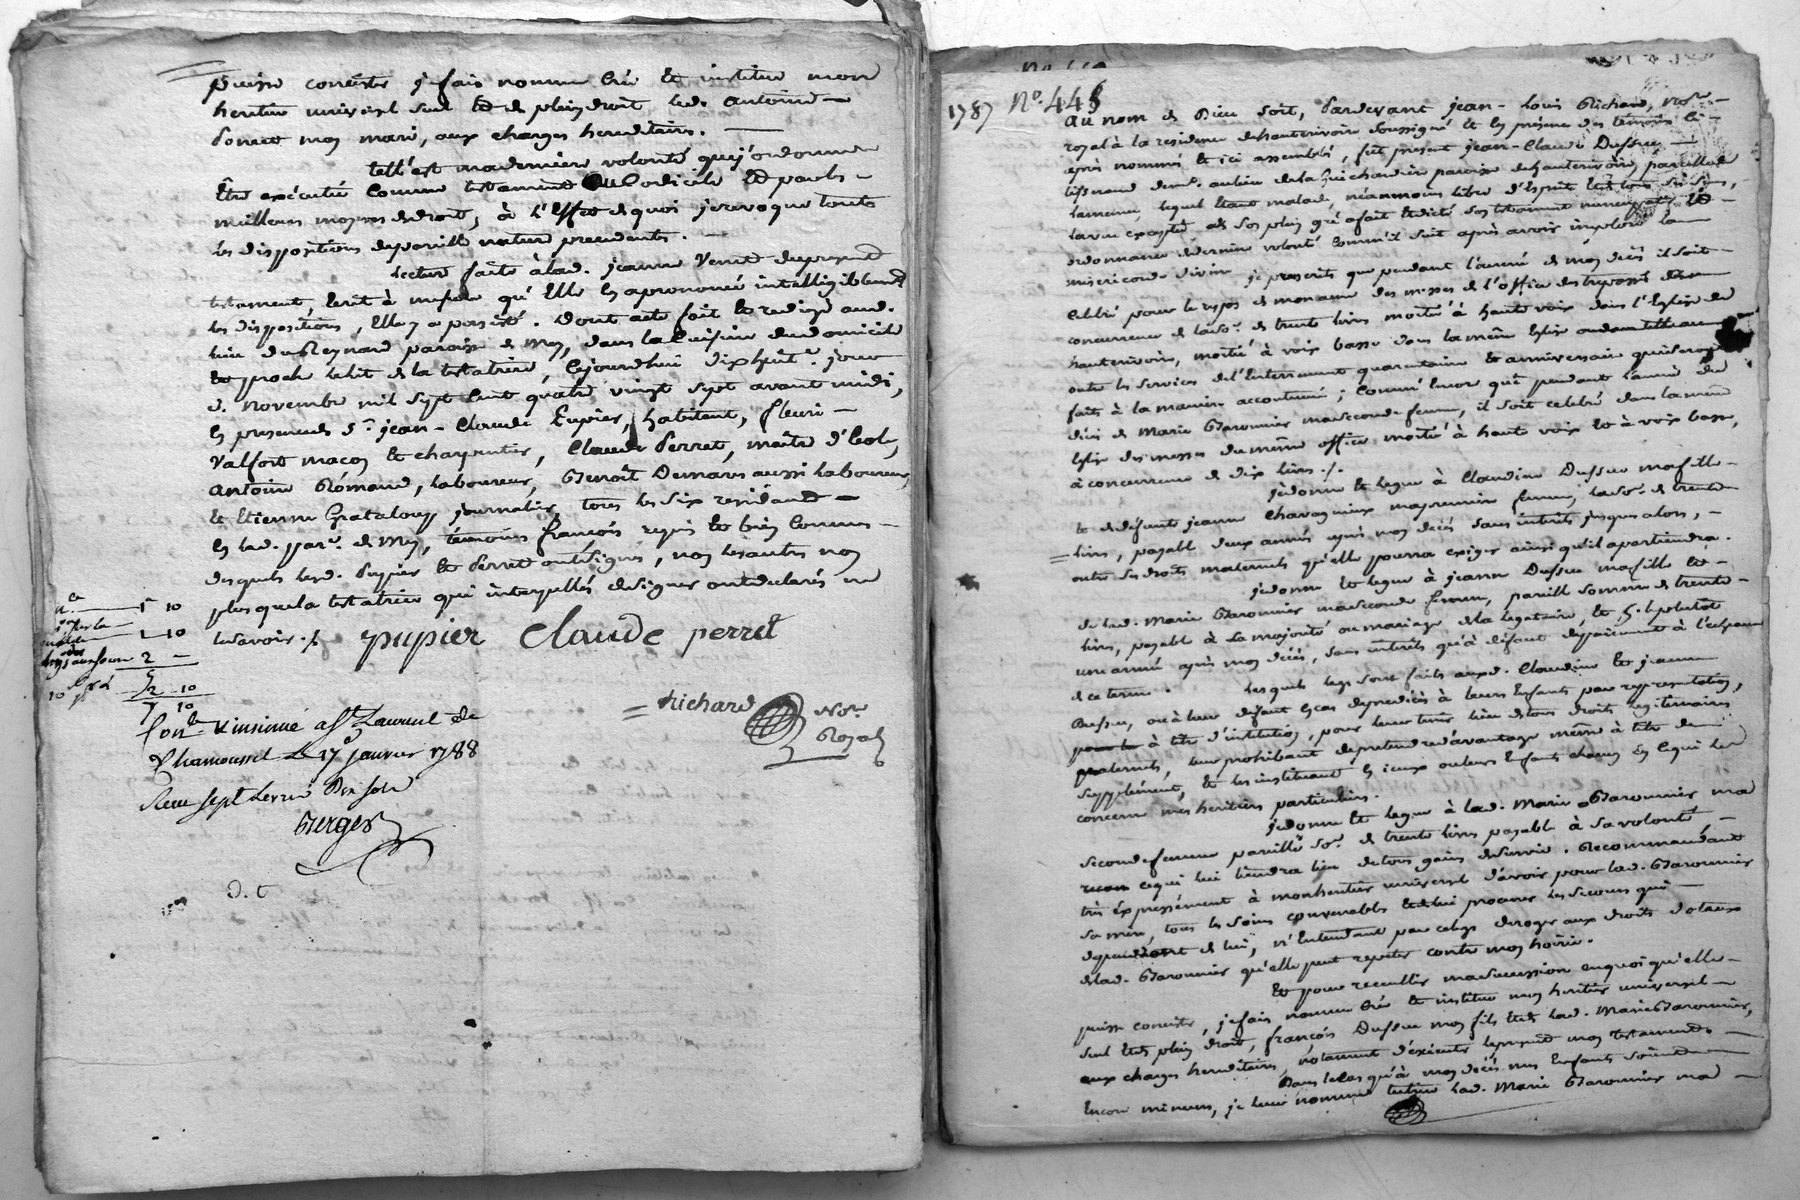 puisse consister je fais nomme crée et institue mon
heritier universel seul et de plein droit led. antoine
mon mari, aux charges hereditaires.
telle est ma derniere volonté que j'ordonne
Être exécutée comme testament ou Codicile et par les
meilleurs moyens de droit, à l'Effet de quoi je revoque toutes
les dispositions de pareille nature precedentes.
Lecture faite à lad. jeanne du present
testament, écrit à mesure qu'Elle en a prononcé intelligiblement
les dispositions, Elle y a persisté. Dont acte fait et redigé aud.
lieu du Reynard paroisse de Mey, dans la cuisine du domicile
et proche le lit de la testatrice, cejourdhui dix huit.e jour
d. novembre mil sept cent quatre vingt sept avant midi,
en presence de s.r jean-Claude Pupier, habitant, fleuri
Valfort maçon et charpentier, Claude Perret, maitre d'Ecole,
antoine Rómand, laboureur, Benoît Demare aussi laboureur,
et Etienne Grataloup journalier, tous les six residant
en lad. par.e de Mey, témoins françois requis et bien connus
desquels lesd. Pupier et Perret ont signés, non les autres non
plus que la testatrice qui interpellés de signer ont declarés ne
le savoir ./.
pupier Claude perret
1" 10
1 10
2 —
5
2 10
7 10
Richard No.re
Royal
Con.lé & insinué a St Laurent de
Chamousset le 17e janvier 1788
Reçu sept Livres Dix sols
Berger
D. C
1787 No. 445
au nom de Dieu soit, Pardevant jean-Louis Richard, not.re
royal à la residence de hauterivoire soussigné et en présence des témoins ci
après nommés et ici assemblés, fut present jean-Claude Dussuc
tisserand dem.t au lieu de la Guichardiere paroisse de hauterivoire,
lequel étant malade, néanmoins libre d'Esprit et de tous ses sens,
la vue exceptée de son plein gré a fait et dicté son testament nuncupatif et
ordonnance de derniere volonté comm'il suit après avoir imploré la
misericorde divine
je prescrits que pendant l'année de mon décès il soit
celebré pour le repos de mon ame des messes de l'office des trépassés
concurrence de la so.e de trente livres moitié à haute voix dans l'Eglise de
hauterivoire, moitié à voix basse dans la même Eglise
outre les services de l'Enterrement quarantaine et anniversaire qui seront
faits à la maniere accoutumée; comme encore que pendant l'année du
décès de Marie Baronnier ma seconde femme, il soit celebré dans la même
Eglise des messes du même office moitié à haute voix et à voix basse,
à concurrence de dix livres ./.
je donne et legue à Claudine Dussuc ma fille
et de défunte jeanne Chavagnieux ma premiere femme, la so.e de trente
livres, payable deux années après mon decès sans interets jusques alors,
outre ses droits maternels qu'elle pourra exiger ainsi qu'il apartiendra.
je donne et legue à jeanne Dussuc ma fille et
de lad. Marie Baronnier ma seconde femme, pareille somme de trente
livres, payable à la majorité ou mariage de la legataire, et s'il plutôt
une année après mon décès, sans interets qu'à défaut de paiement à l'echéance
de ce terme.
Lesquels legs sont faits auxd. Claudine et jeanne
Dussuc, ou à leur défaut en cas de predécès à leurs Enfants par representation,
à titre d'institution, pour leur tenir lieu de tous droits legitimaires
paternels, leur prohibant de pretendre d'avantage même à titre de
supplément, et les instituant en iceux ou leurs Enfants chacun en ce qui les
concerne mes heritiers particuliers.
je donne et legue à lad. Marie Baronnier ma
seconde femme pareille so.e de trente livres payable à sa volonté
ce qui lui tiendra lieu de tous gains de survie. Recommandant
très Expressément à mon heritier universel d'avoir pour lad. Baronnier
sa mère, tous les soins convenables et de lui procurer les secours qui
dependront de lui, n'Entendant par ce legs deroger aux droits dotaux
de lad. Baronnier qu'elle peut repeter contre mon hoirie.
et pour recueillir ma succession en quoi qu'elle
puisse consister, je fais nomme crée et institue mon heritier universel
seul et de plein droit, françois Dussuc mon fils et de lad. Marie Baronnier,
aux charges hereditaires, notament d'exécuter le present mon testament.
Dans le cas qu'à mon décès mes Enfants soient
Encore mineurs, je leur nomme tutrice lad. Marie Baronnier ma